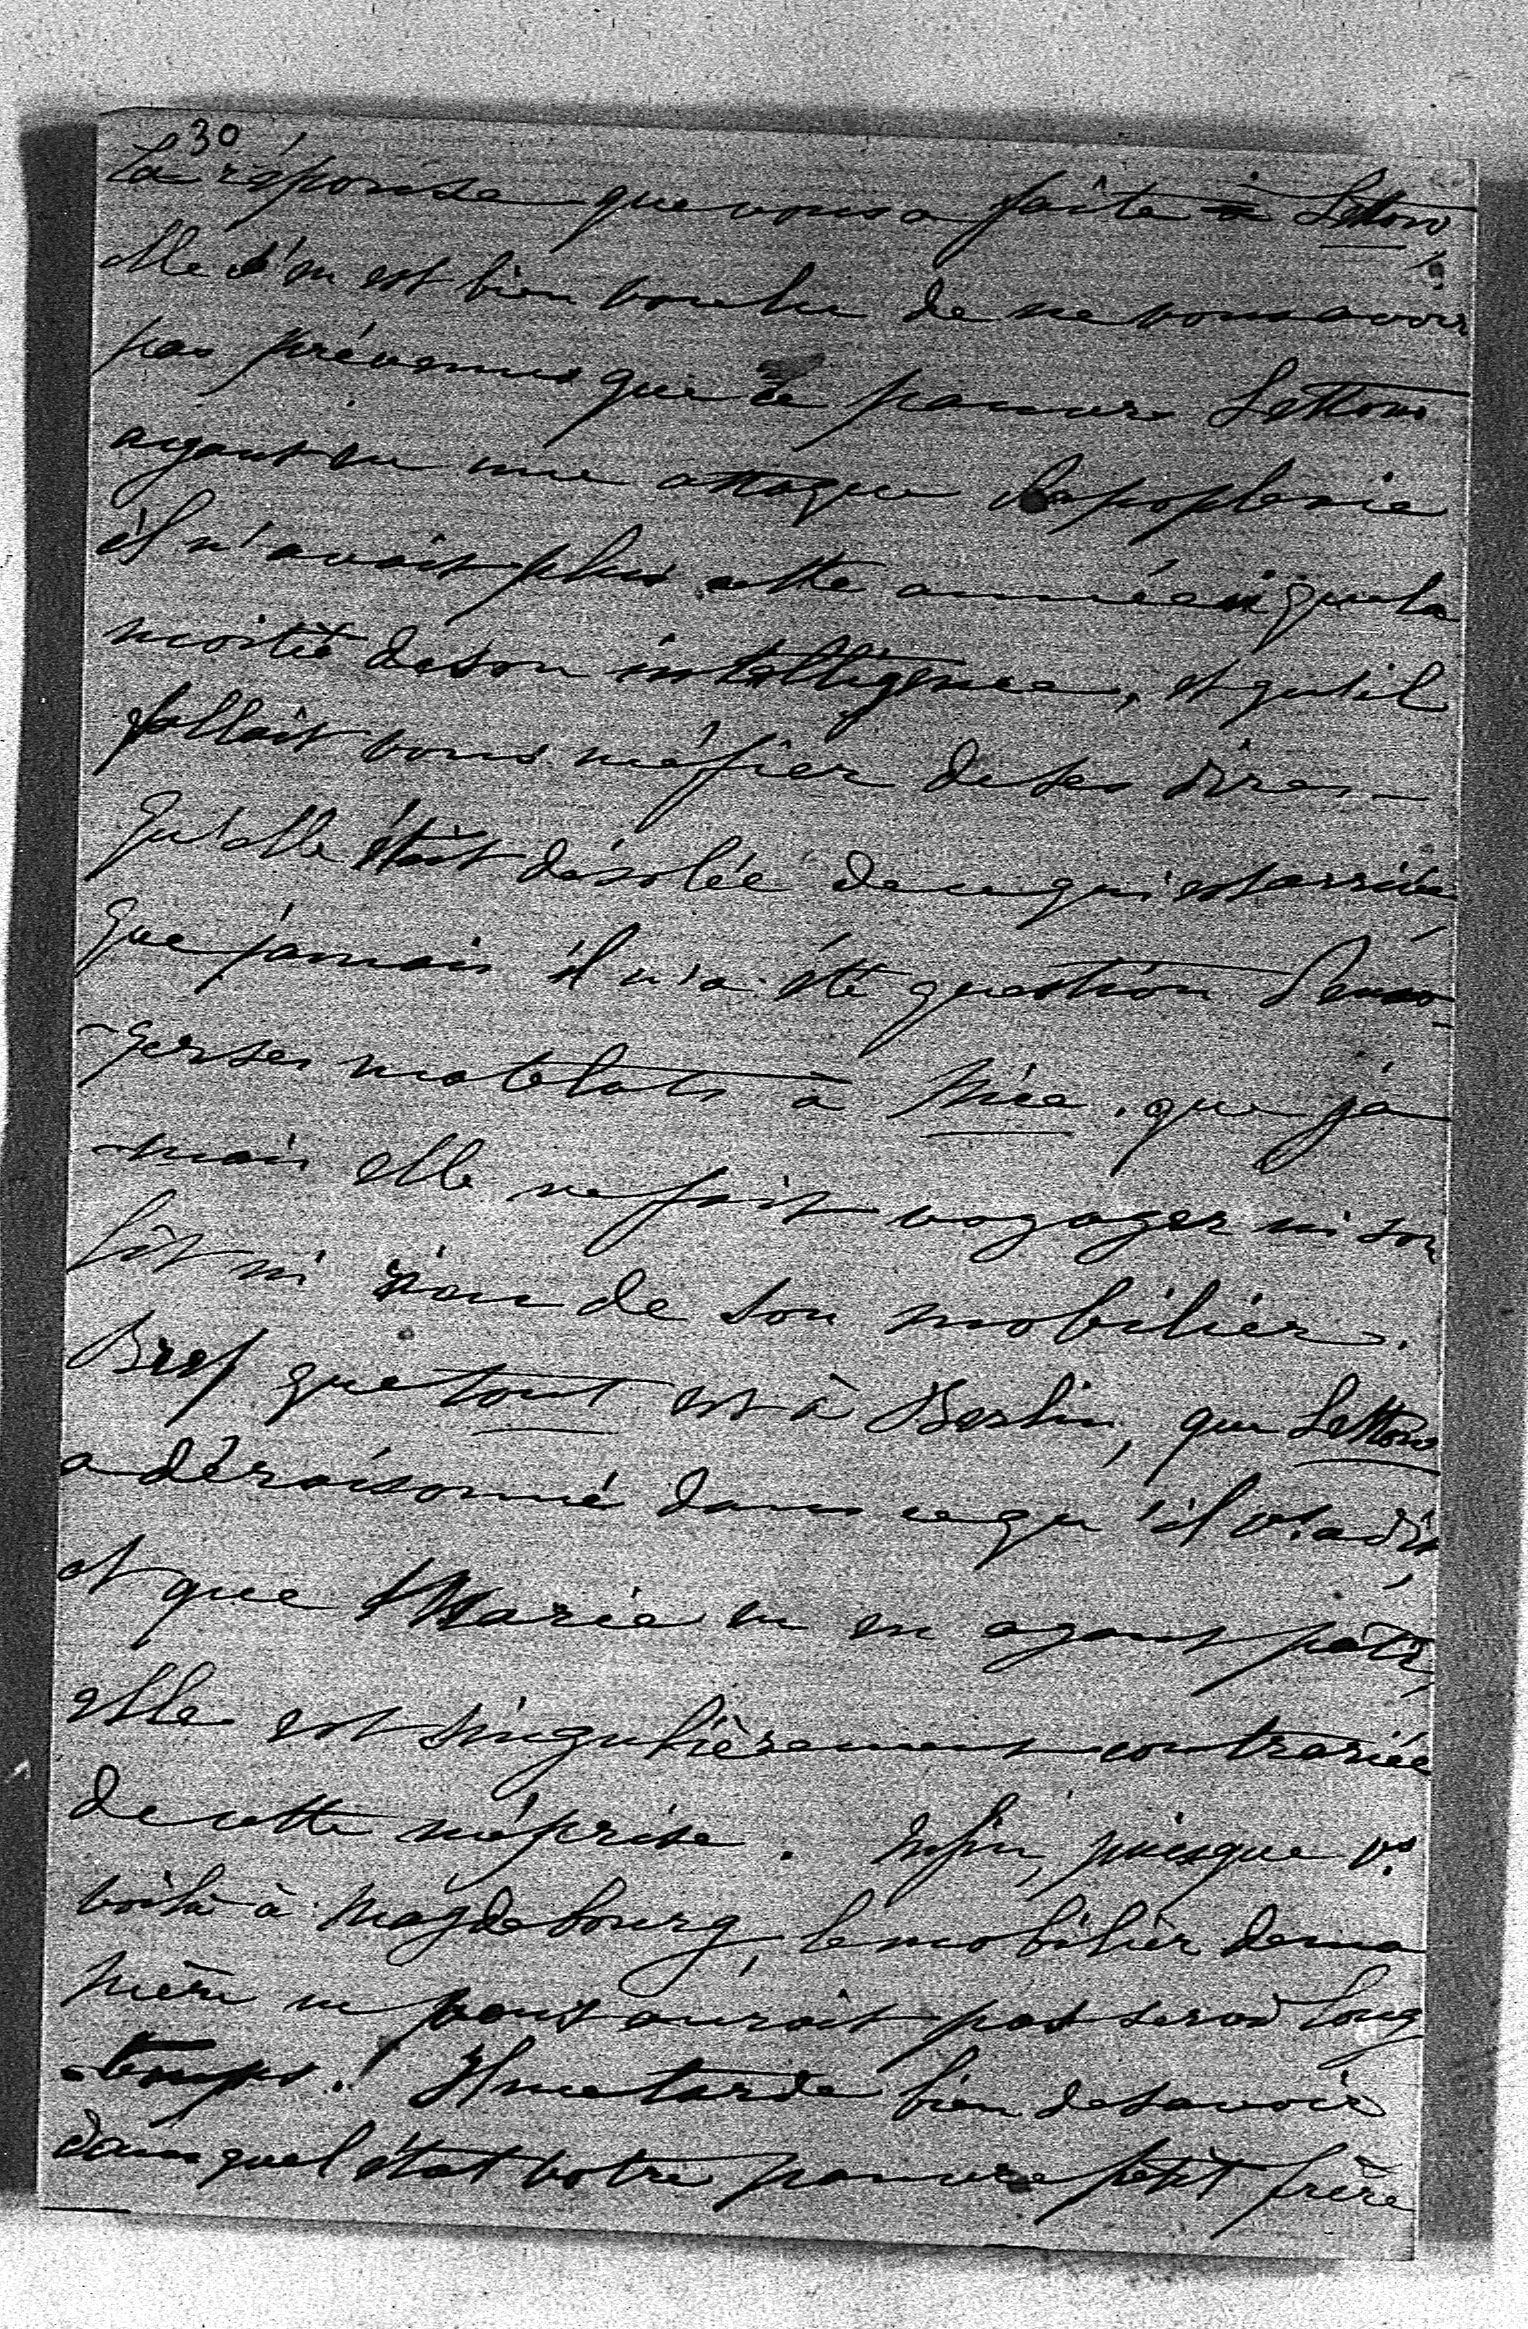 30
la réponse que vous a faite à Lettow
elle s'en est bien voulue de ne vous avoir
pas prévenus que ce pauvre Lettow
ayant eu une attaque d'apoplexie
il n'avait plus cette année que la
moitié de son intelligence, et qu'il
fallait vous méfier de ses dires –
qu'elle était désolée de ce qui est arrivé
que jamais il n'a été question d'envo-
-yer ses matelats à Nice, que ja
-mais elle ne fait voyager ni son
lit ni rien de son mobilier.
Bref que tout est à Berlin, que Lettow
a déraisonné dans ce qu'il vs. a dit
et que Marie en ayant pâti,
elle est singulièrement contrariée
de cette méprise. Enfin, puisque vs.
voilà à Magdebourg, le mobilier de ma
mère ne vous aurait pas servi long
-temps. Il me tarde bien de savoir
dans quel état votre pauvre petit frère